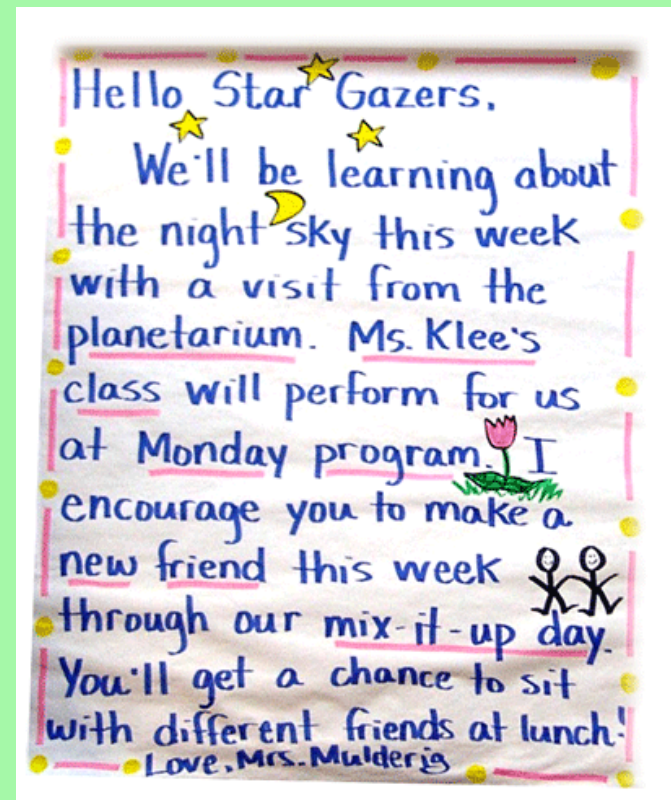 Hello Star Gazers,
We'll be learning about
the night sky this week
with a visit from the
planetarium. Ms. Klee's
class will perform for us
at Monday program. I
encourage you to make a
new friend this week
through our mix-it-up day.
You'll get a chance to sit
with different friends at lunch!
Love, Mrs. Mulderig